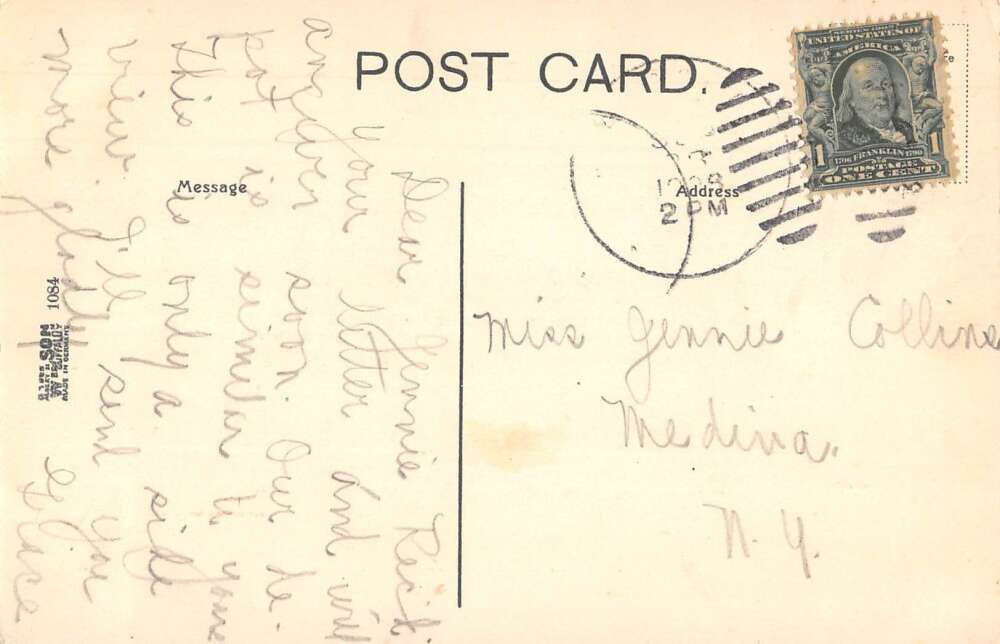 POST CARD.
Message
Address
SERIES 1902
UNITED STATES OF
AMERICA
1706 FRANKLIN 1790
POSTAGE
1 ONE CENT 1
2 PM
Miss Jennie Collins
Medina.
N. Y.
Dear Jennie Rec'd
your letter and will
answer soon. Our de-
pot is similar to yours
This is only a side
view I'll send you
more gladly Grace
1084
SON
BUFFALO
MADE IN GERMANY